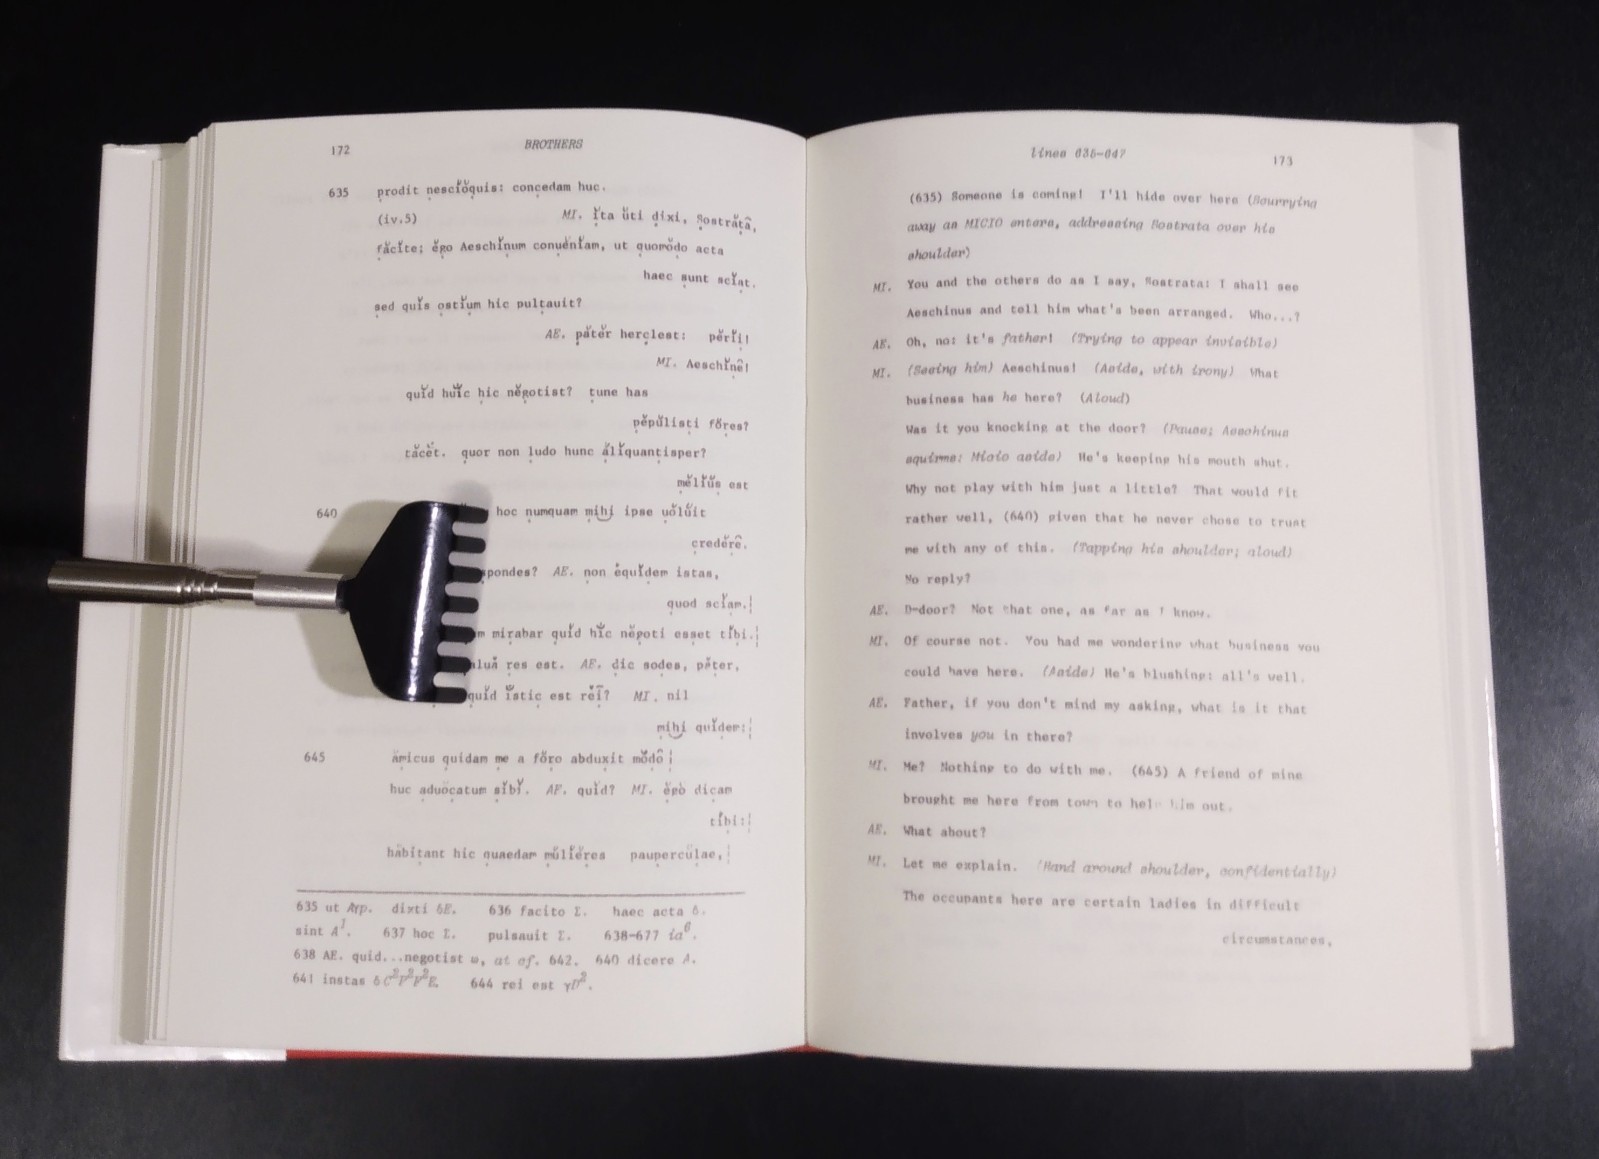 172
BROTHERS
635 prodit nescĭŏquis: concedam huc.
(iv.5) MI. ĭta ŭti dixi, Sostrătă,
făcĭte; ĕgo Aeschĭnum conuenĭam, ut quomŏdo acta
haec sunt scĭat.
sed quĭs ostĭum hic pultauit?
AE. pătĕr herclest: pĕrĭi!
MI. Aeschĭne!
quĭd huĭc hic nĕgotist? tune has
pĕpŭlisti fŏres?
tăcĕt. quor non ludo hunc ălĭquantisper?
mĕlĭŭs est
640 hoc numquam mihi ipse uŏlŭit
credĕre.
pondes? AE. non ĕquĭdem istas,
quod scĭam.¦
mirabar quĭd hĭc nĕgoti esset tĭbi.¦
res est. AE. dic sodes, păter,
quĭd ĭstic est rĕi? MI. nil
mihi quĭdem:¦
645 ămicus quidam me a fŏro abduxit mŏdŏ¦
huc aduŏcatum sĭbĭ. AE. quĭd? MI. ĕgŏ dicam
tĭbi:¦
hăbĭtant hic quaedam mŭlĭĕres paupercŭlae,¦
635 ut Arp. dixti δE. 636 facito Σ. haec acta δ.
sint A¹. 637 hoc Σ. pulsauit Σ. 638-677 ia⁶.
638 AE. quid...negotist ω, at cf. 642. 640 dicere A.
641 instas δC²P²F²E. 644 rei est γD².
lines 635-647
173
(635) Someone is coming! I'll hide over here (Scurrying
away as MICIO enters, addressing Sostrata over his
shoulder)
MI. You and the others do as I say, Sostrata: I shall see
Aeschinus and tell him what's been arranged. Who...?
AE. Oh, no: it's father! (Trying to appear invisible)
MI. (Seeing him) Aeschinus! (Aside, with irony) What
business has he here? (Aloud)
Was it you knocking at the door? (Pause; Aeschinus
squirms: Micio aside) He's keeping his mouth shut.
Why not play with him just a little? That would fit
rather well, (640) given that he never chose to trust
me with any of this. (Tapping his shoulder; aloud)
No reply?
AE. D-door? Not that one, as far as I know.
MI. Of course not. You had me wondering what business you
could have here. (Aside) He's blushing: all's well.
AE. Father, if you don't mind my asking, what is it that
involves you in there?
MI. Me? Nothing to do with me. (645) A friend of mine
brought me here from town to help him out.
AE. What about?
MI. Let me explain. (Hand around shoulder, confidentially)
The occupants here are certain ladies in difficult
circumstances,